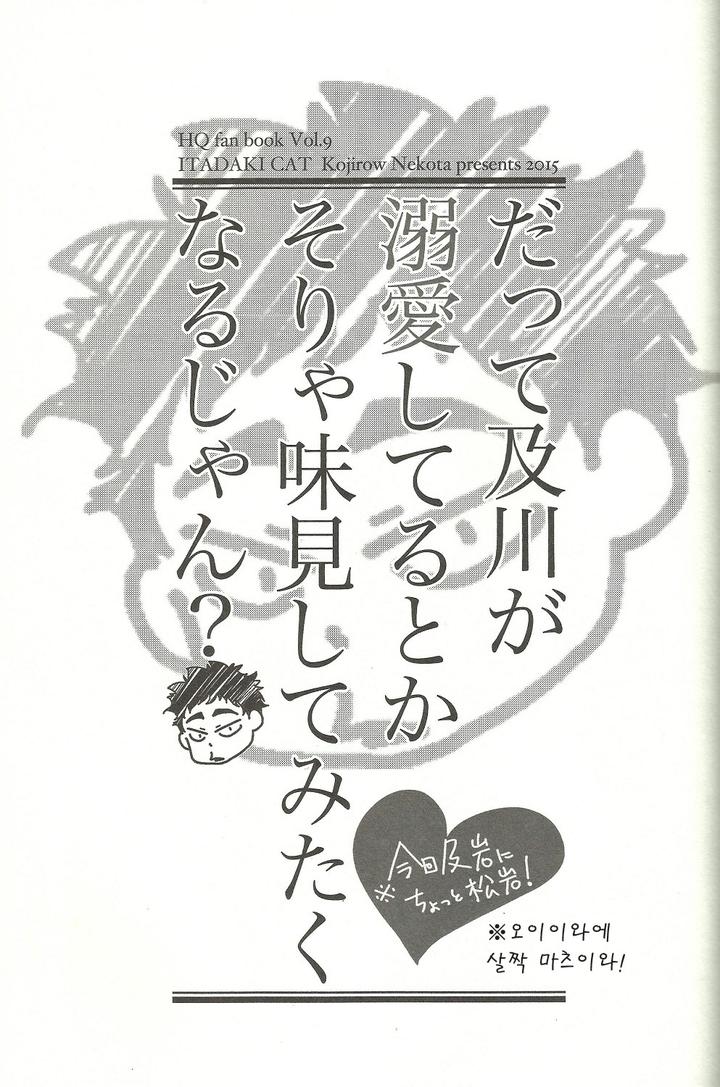 HQ fan book Vol.9
ITADAKI CAT Kojirow Nekota presents 2015
だって及川が
溺愛してるとか
そりゃ味見してみたく
なるじゃん?
※今回及岩に
ちょっと松岩!
※오이이와에
살짝 마츠이와!